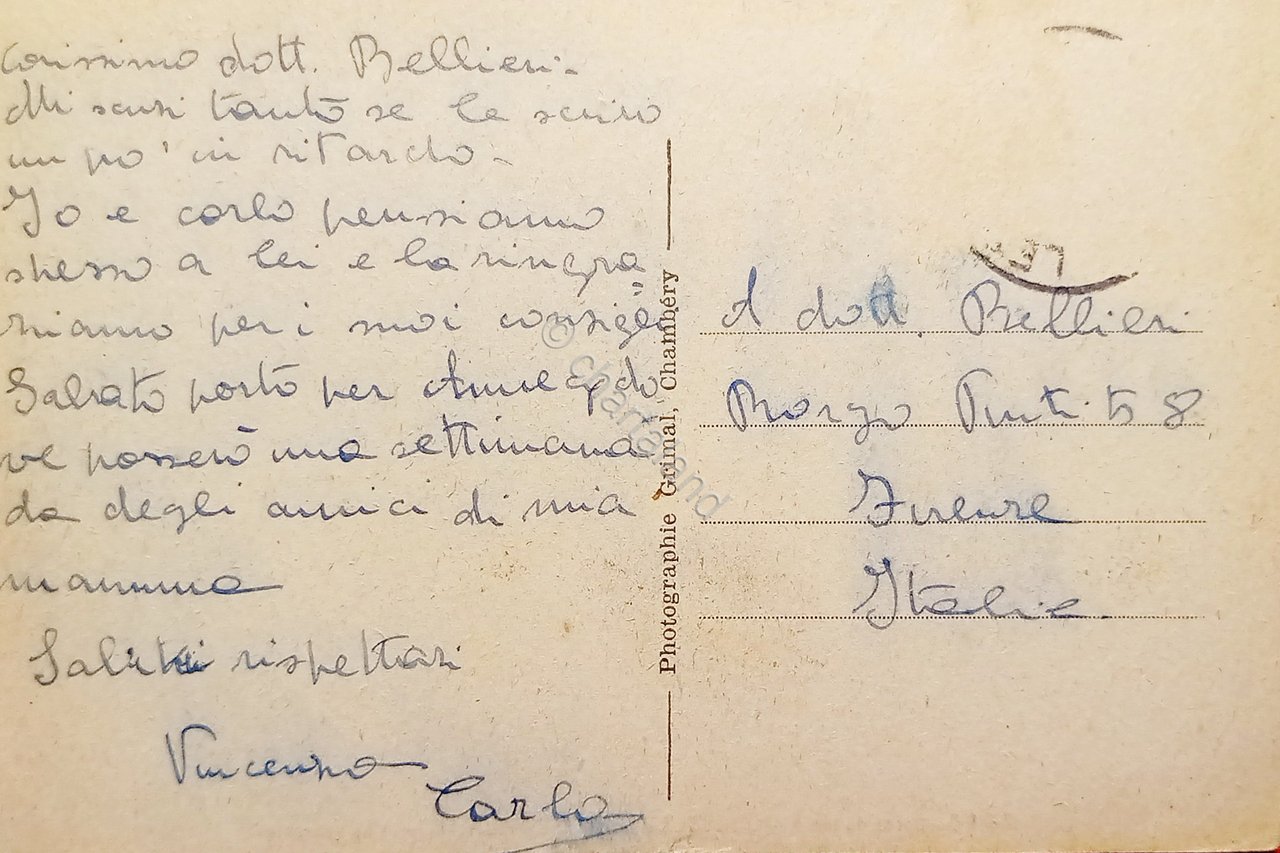 Carissimo dott. Bellieni-
Mi scusi tanto se le scrivo
un po' in ritardo-
Io e Carlo pensiamo
spesso a lei e la ringra
ziamo per i suoi consigli
Sabato parto per Annecy do
ve passerò una settimana
da degli amici di mia
mamma
Saluti rispettosi
Vincenzo
Carlo
Photographie Grimal, Chambéry
A dott. Bellieni
Borgo Pinti 58
Firenze
Italie
© chartaland